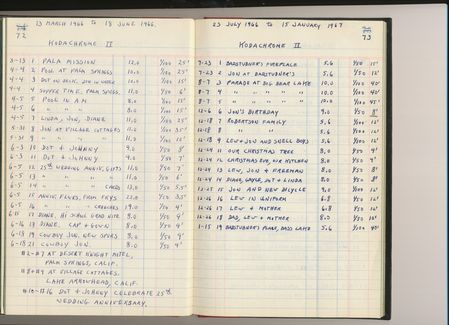 72
13 MARCH 1966 to 18 JUNE 1966.
KODACHROME II
3-13 1 PALA MISSION 12.0 1/100 25'
4-4 2 POOL AT PALM SPRINGS 10.0 1/100 25'
4-4 3 DOT ON DECK, JON IN WATER 10.0 1/100 15'
4-4 4 SUPPER TIME, PALM SPRGS. 11.0 1/50 6'
4-5 5 POOL IN A.M 8.0 1/100 15'
4-5 6 " " " 8.0 1/100 15'
4-5 7 LINDA, JON, DIANE 11.0 1/100 25'
5-31 8 JON AT VILLAGE COTTAGES 11.0 1/100 35'
5-31 9 " " " " 11.0 1/100 15'
6-3 10 DOT & JOHNNY 9.0 1/50 8'
6-3 11 DOT & JOHNNY 9.0 1/50 7'
6-5 12 25th WEDDING ANNIV. GIFTS 11.0 1/50 7'
6-5 13 " " " " 11.0 1/50 6'
6-5 14 " " " CARDS 13.0 1/50 5.5'
6-5 15 ANNIV. FLWRS. FROM FRYS 22.0 1/50 3.5'
6-5 16 " " " GREGORIES 19.0 1/50 4'
6-15 17 DIANE, HI SCHOOL GRAD NITE 8.0 1/50 9'
6-16 18 DIANE, CAP & GOWN 8.0 1/50 9'
6-18 19 COWBOY JON, NEW SPURS 8.0 1/50 9'
6-18 21 COWBOY JON. 8.0 1/50 9'
#2-#7 AT DESERT KNIGHT MOTEL,
PALM SPRINGS, CALIF.
#8-#9 AT VILLAGE COTTAGES.
LAKE ARROWHEAD, CALIF.
DOT & JOHNNY CELEBRATE 25th
WEDDING ANNIVERSARY.
73
23 JULY 1966 to 15 JANUARY 1967
KODACHROME II
7-23 1 BADSTUBNER'S FIREPLACE 5.6 1/50 15'
7-23 2 JON AT BADSTUBNER'S 5.6 1/50 12'
8-7 3 PARADE AT BIG BEAR LAKE 10.0 1/100 40'
8-7 4 " " " " " 10.0 1/100 40'
8-7 5 " " " " " 10.0 1/100 45'
12-6 6 JON'S BIRTHDAY 9.0 1/50 8'
12-18 7 ROBERTSON FAMILY 5.6 1/50 12'
12-18 8 " " 5.6 1/50 12'
12-18 9 LEW & JON AND SNELL BOYS 5.6 1/50 12'
12-24 11 OUR CHRISTMAS TREE 8.0 1/50 9'
12-24 12 CHRISTMAS EVE, OUR KITCHEN 8.0 1/50 9'
12-24 13 LEW, JON & FREEMAN 8.0 1/50 8'
12-24 14 DIANE, GAYLE, DOT & LINDA 8.0 1/50 8'
12-25 15 JON AND NEW BICYCLE 9.0 1/100 12'
12-26 16 LEW IN UNIFORM 6.8 1/100 12'
12-26 17 LEW & MOTHER 6.8 1/100 10'
12-26 18 DAD, LEW & MOTHER 8.0 1/100 10'
1-15 19 BADSTUBNER'S PLACE, BASS LAKE 5.6 1/100 40'